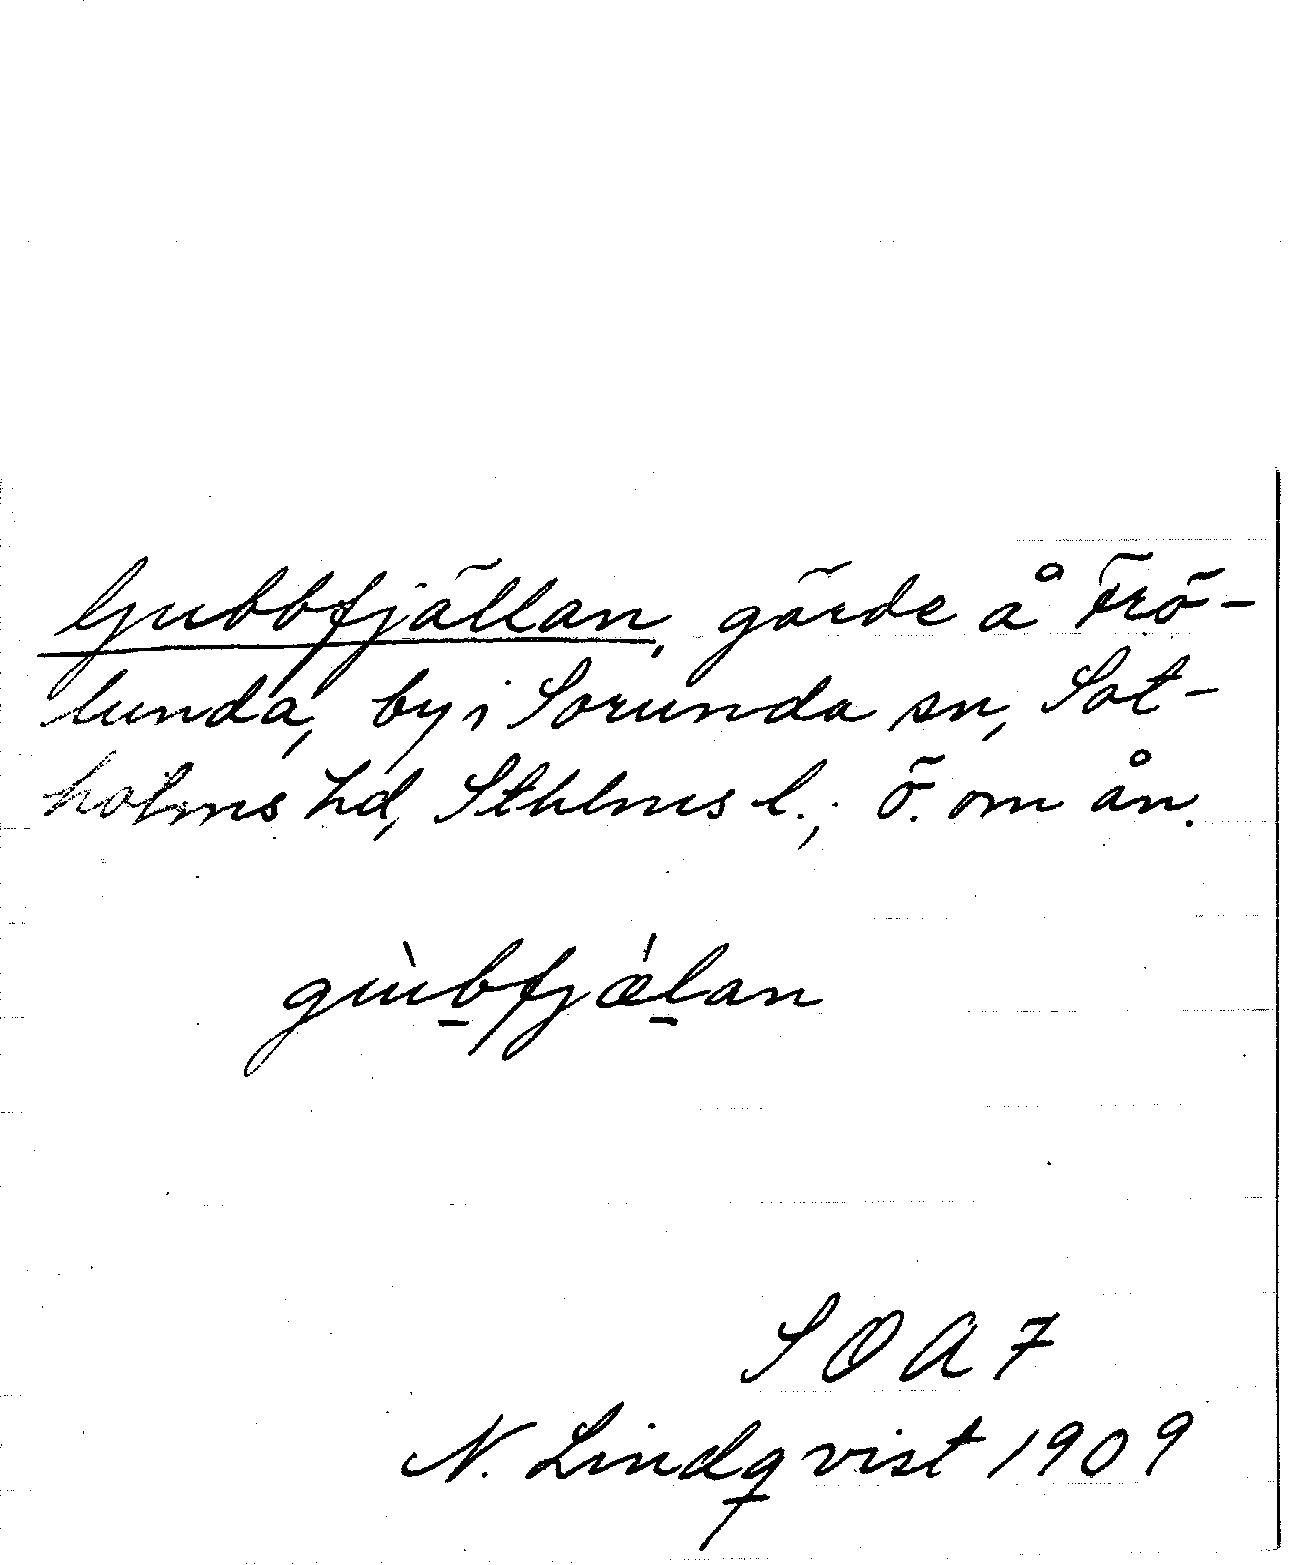 Gubbfjällan, gärde å Frö-
lunda, by i Sorunda sn, Sot-
holms hd, Sthlms l.; ö. om ån.
gùb̲fjǽl̲an
SOAF
N. Lindqvist 1909